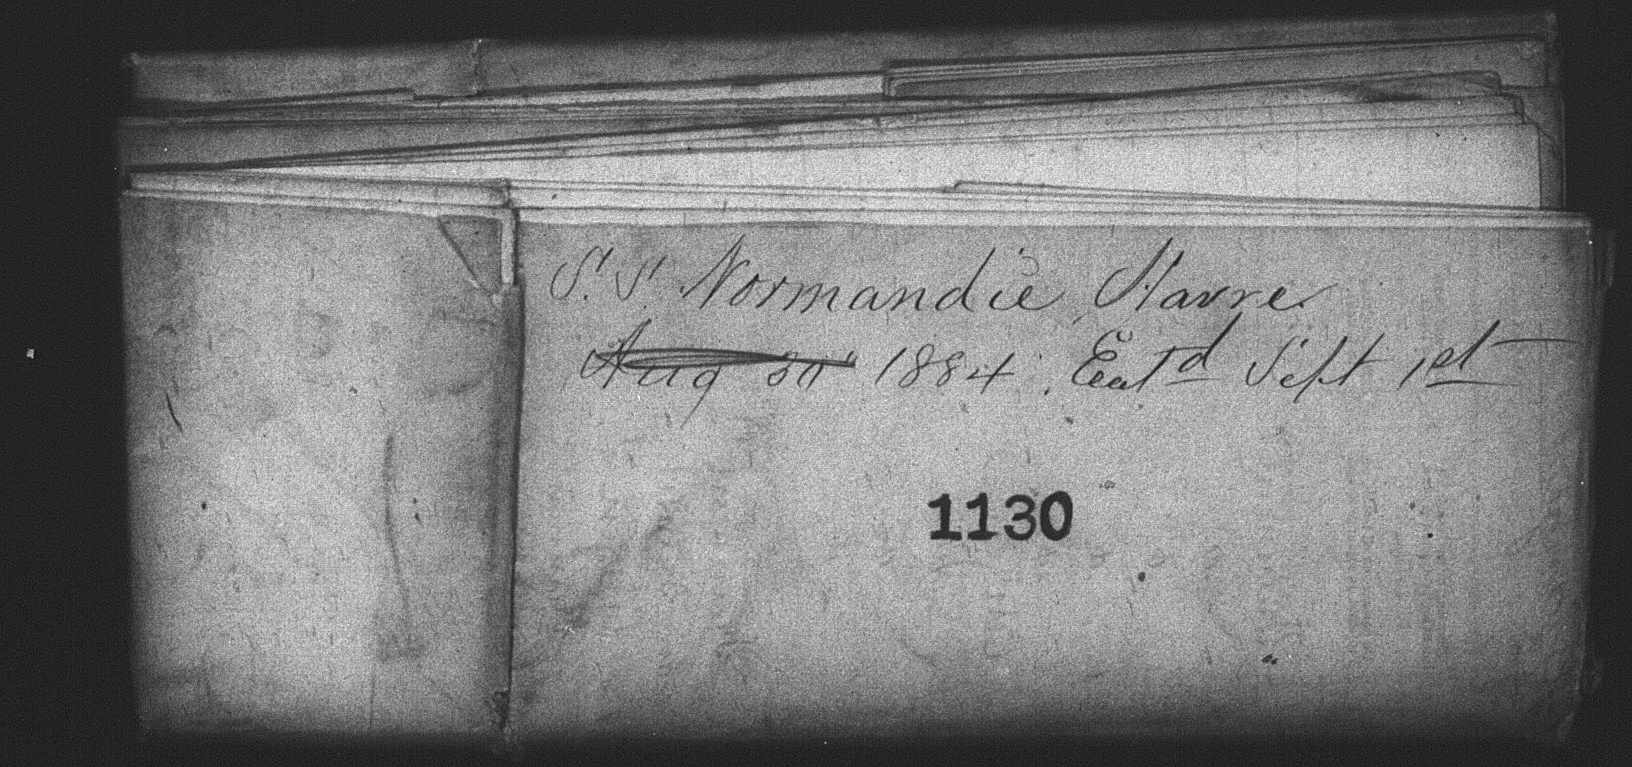 S.S. Normandie, Havre.
Aug 30 1884. Ent'd Sept 1st
1130